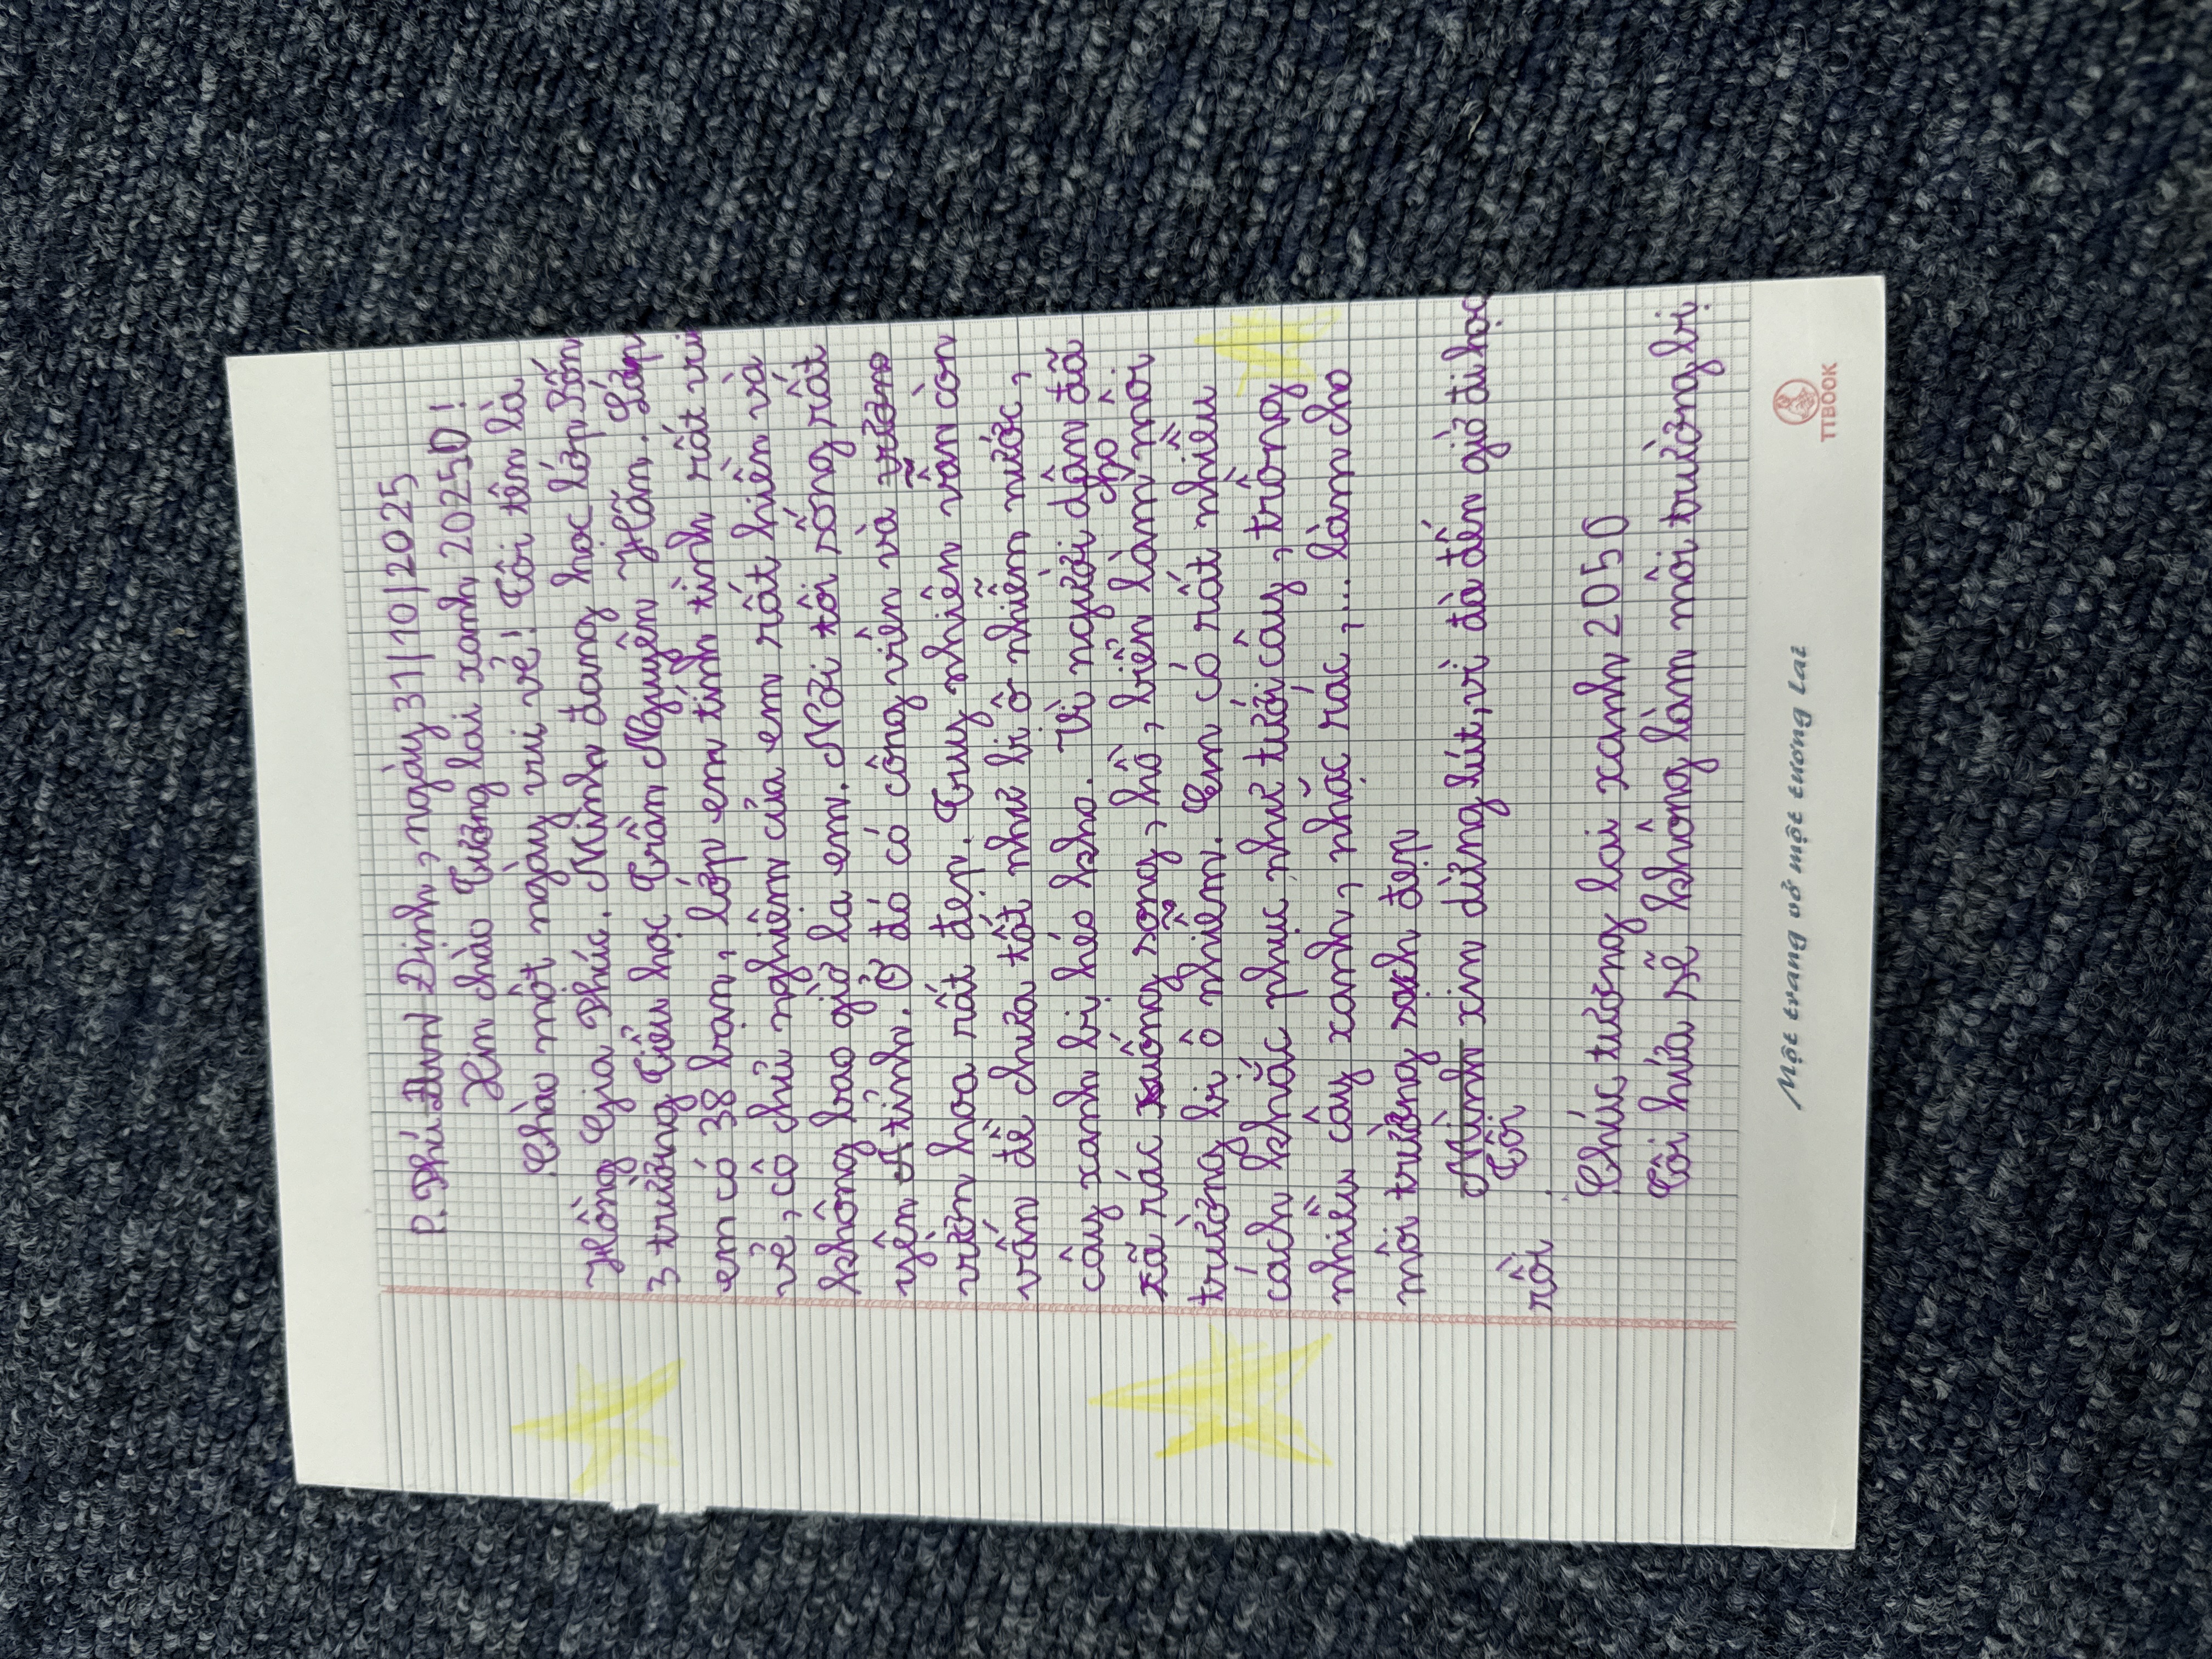 P. Phú Định, ngày 31/10/2025
Xin chào Tương lai xanh 20250!
Chào một ngày vui vẻ! Tôi tên là
Hồng Gia Phúc. Mình đang học lớp 3/3
3 trường Tiểu học Trần Nguyên Hãn. Lớp
em có 38 bạn, lớp em tinh tình rất vui
vẻ, cô chủ nghiệm của em rất hiền và
không bao giờ la em. Nơi tôi sống rất
yên tỉnh. Ở đó có công viên và
vườn hoa rất đẹp. Truy nhiên vẫn còn
vấn đề chưa tốt như bị ô nhiễm nước,
cây xanh bị héo kho. Vì người dân đã
xã rác xuống song, hồ, biển làm cho môi
trường bị ô nhiễm. Em có rất nhiều
cách khắc phục như tưới cây, trồng
nhiều cây xanh, nhặc rác, ... làm cho
môi trường sạch đẹp
Mình xin dừng bút, vì đà đến giờ đi học
Tôi
rồi.
Chúc tương lai xanh 2050
Tôi hứa sẽ không làm môi trường bị
Một trang vở một tương lai
TTBOOK